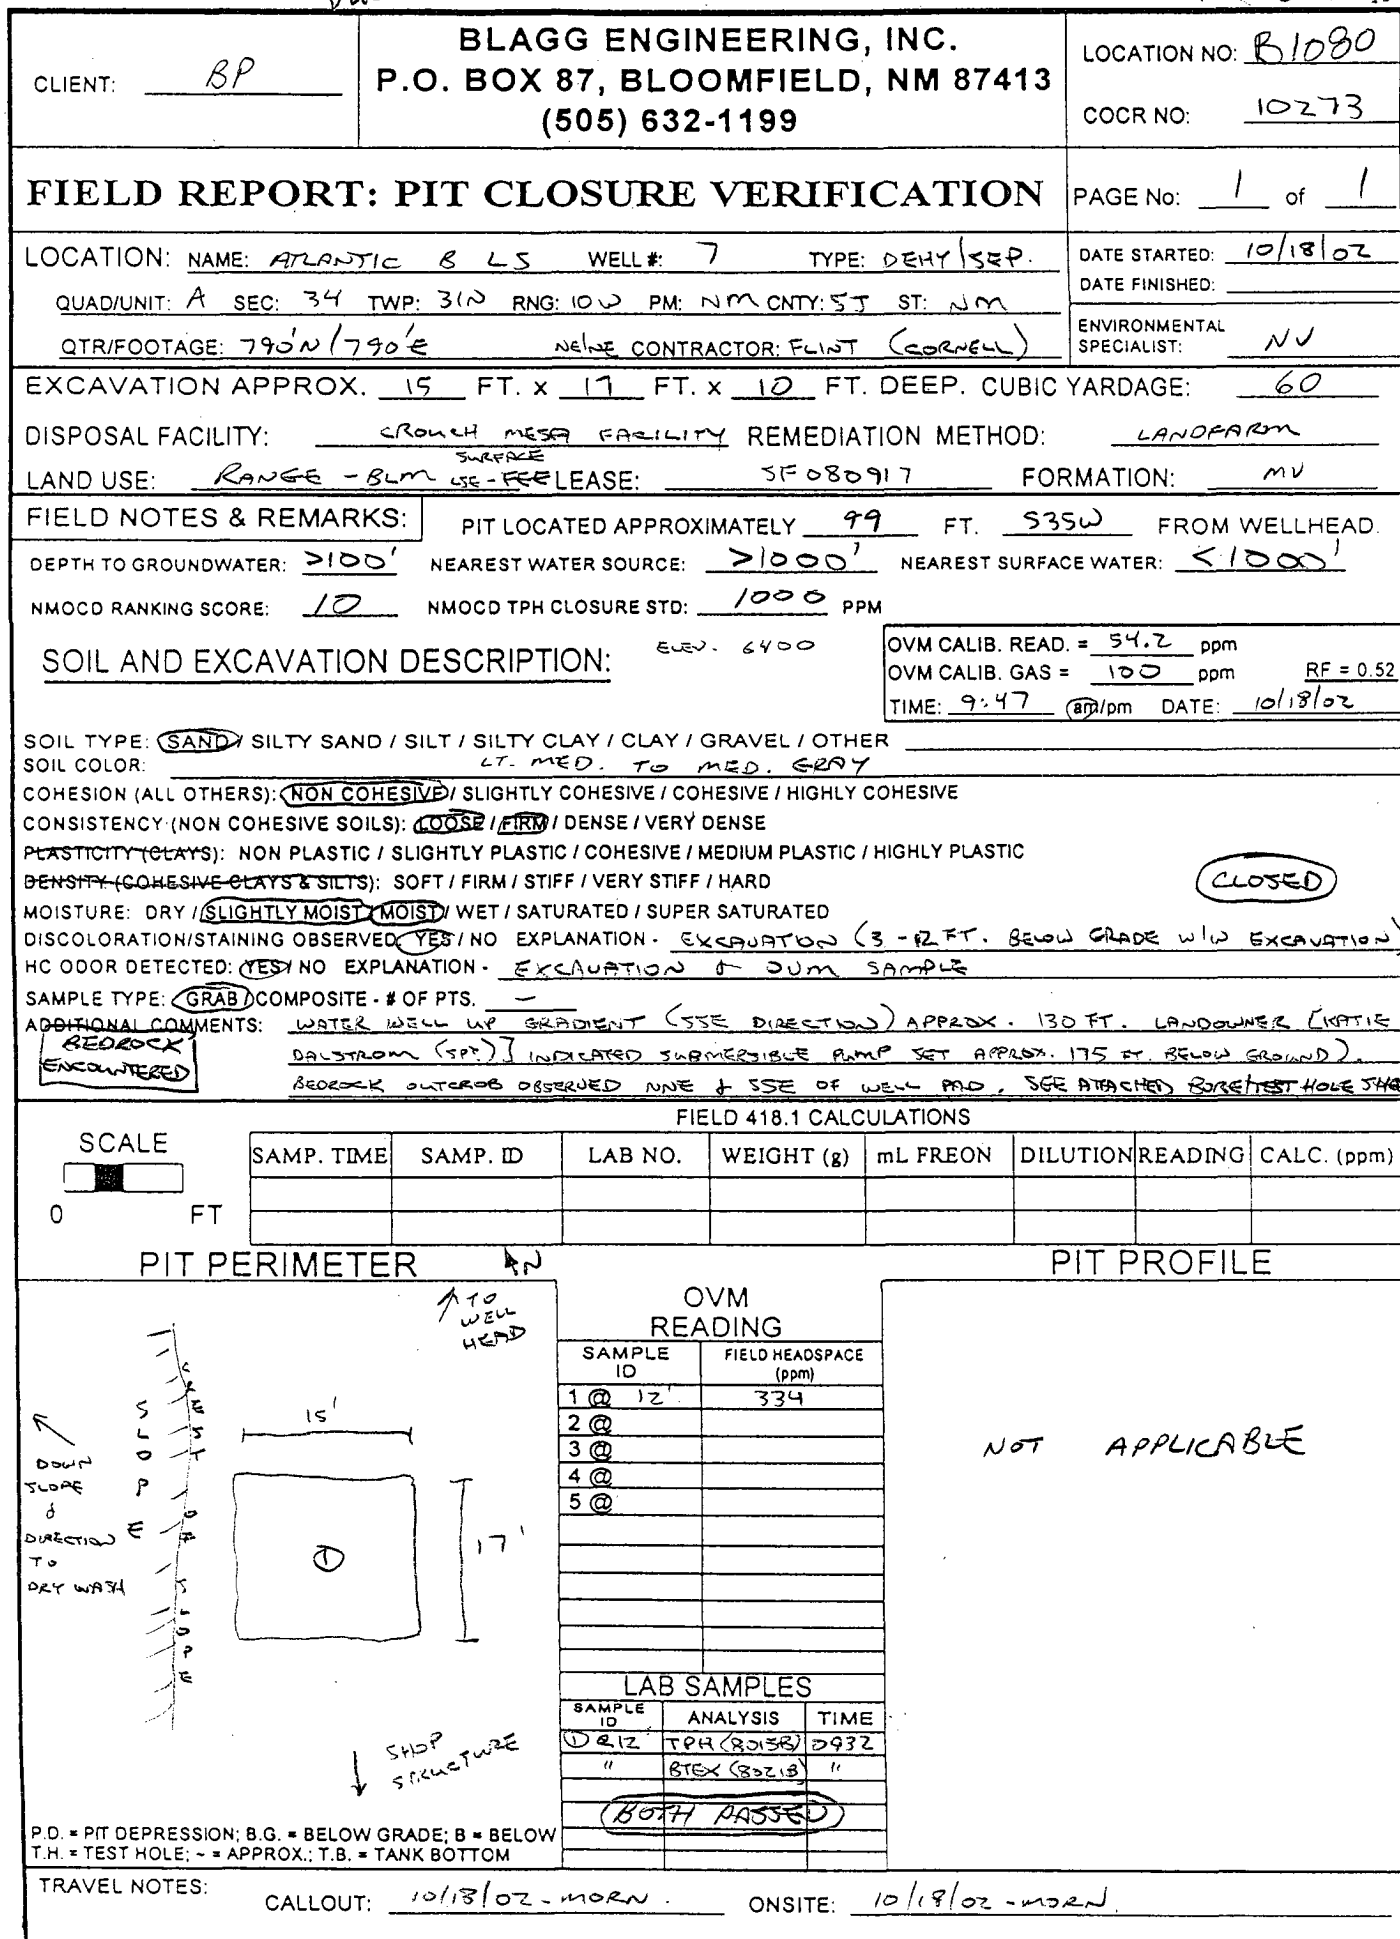 BLAGG ENGINEERING, INC.
P.O. BOX 87, BLOOMFIELD, NM 87413
(505) 632-1199
CLIENT: BP
LOCATION NO: B1080
COCR NO: 10273
FIELD REPORT: PIT CLOSURE VERIFICATION
PAGE No: 1 of 1
LOCATION: NAME: ATLANTIC B LS WELL #: 7 TYPE: DEHY/SEP.
QUAD/UNIT: A SEC: 34 TWP: 31N RNG: 10W PM: NM CNTY: SJ ST: NM
QTR/FOOTAGE: 790'N/790'E NE/NE CONTRACTOR: FLINT (CORNELL)
DATE STARTED: 10/18/02
DATE FINISHED:
ENVIRONMENTAL SPECIALIST: NV
EXCAVATION APPROX. 15 FT. x 17 FT. x 10 FT. DEEP. CUBIC YARDAGE: 60
DISPOSAL FACILITY: CROUCH MESA FACILITY REMEDIATION METHOD: LANDFARM
LAND USE: RANGE - BLM LSE - SURFACE FEE LEASE: SF080917 FORMATION: MV
FIELD NOTES & REMARKS: PIT LOCATED APPROXIMATELY 99 FT. S35W FROM WELLHEAD.
DEPTH TO GROUNDWATER: >100' NEAREST WATER SOURCE: >1000' NEAREST SURFACE WATER: <1000'
NMOCD RANKING SCORE: 10 NMOCD TPH CLOSURE STD: 1000 PPM
SOIL AND EXCAVATION DESCRIPTION:
ELEV. 6400
OVM CALIB. READ. = 54.2 ppm
OVM CALIB. GAS = 100 ppm RF = 0.52
TIME: 9:47 am/pm DATE: 10/18/02
SOIL TYPE: SAND / SILTY SAND / SILT / SILTY CLAY / CLAY / GRAVEL / OTHER
SOIL COLOR: LT. MED. TO MED. GRAY
COHESION (ALL OTHERS): NON COHESIVE / SLIGHTLY COHESIVE / COHESIVE / HIGHLY COHESIVE
CONSISTENCY (NON COHESIVE SOILS): LOOSE / FIRM / DENSE / VERY DENSE
PLASTICITY (CLAYS): NON PLASTIC / SLIGHTLY PLASTIC / COHESIVE / MEDIUM PLASTIC / HIGHLY PLASTIC
DENSITY (COHESIVE CLAYS & SILTS): SOFT / FIRM / STIFF / VERY STIFF / HARD
CLOSED
MOISTURE: DRY / SLIGHTLY MOIST / MOIST / WET / SATURATED / SUPER SATURATED
DISCOLORATION/STAINING OBSERVED: YES / NO EXPLANATION - EXCAVATON (3-12 FT. BELOW GRADE W/W EXCAVATION)
HC ODOR DETECTED: YES / NO EXPLANATION - EXCAVATION & OVM SAMPLE
SAMPLE TYPE: GRAB / COMPOSITE - # OF PTS. —
ADDITIONAL COMMENTS: WATER WELL UP GRADIENT (SSE DIRECTION) APPROX. 130 FT. LANDOWNER [KATIE
BEDROCK ENCOUNTERED
DALSTROM (SP?)] INDICATED SUBMERSIBLE PUMP SET APPROX. 175 FT. BELOW GROUND).
BEDROCK OUTCROB OBSERVED NNE & SSE OF WELL PAD. SEE ATTACHED BORE/TEST HOLE
FIELD 418.1 CALCULATIONS
SCALE
0 FT
SAMP. TIME SAMP. ID LAB NO. WEIGHT (g) mL FREON DILUTION READING CALC. (ppm)
PIT PERIMETER
N
PIT PROFILE
TO WELL HEAD
CREST OF SLOPE
SLOPE
DOWN SLOPE & DIRECTION TO DRY WASH
15'
17'
1
SHOP STRUCTURE
OVM READING
SAMPLE ID FIELD HEADSPACE (ppm)
1 @ 12' 334
2 @
3 @
4 @
5 @
NOT APPLICABLE
LAB SAMPLES
SAMPLE ID ANALYSIS TIME
1 @ 12' TPH (8015B) 0932
" BTEX (8021B) "
BOTH PASSED
P.D. = PIT DEPRESSION; B.G. = BELOW GRADE; B = BELOW
T.H. = TEST HOLE; ~ = APPROX.; T.B. = TANK BOTTOM
TRAVEL NOTES: CALLOUT: 10/18/02 - MORN. ONSITE: 10/18/02 - MORN.